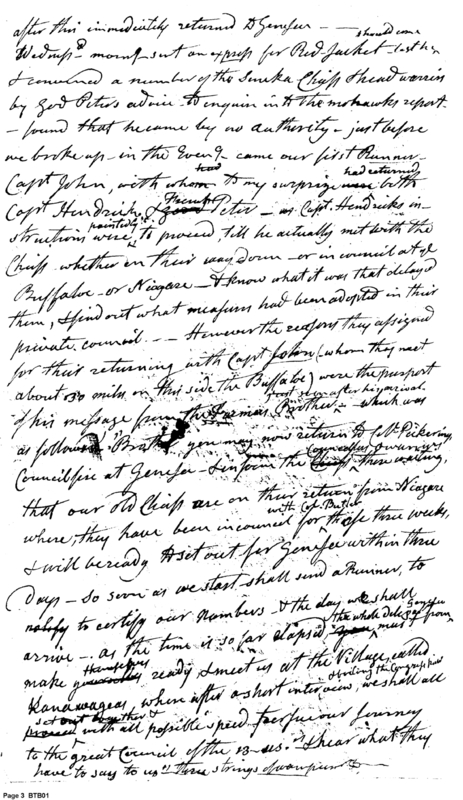 after this immediately returned to Genesee —
should come
Wednsd morng — sent an express for Red-Jacket —
& convened a number of the Seneka Chiefs & head warriors
by Good Peters advice to enquire into the mohawks report
— found that he came by no authority — just before
we broke up — in the Eveng — came our first Runner —
had had returned
Capt John, with whom to my surprise were both
Capt Hendrick & Good Peter — as Capt. Hendricks in-
structions were pointedly to proceed, till he actually met with the
Chiefs whether on their way down — or in council at ye
Buffaloe — or Niagara — to know what it was that delayed
them, & find out what measures had been adopted in their
private council. — — However the reasons they assigned
for their returning with Capt John (whom they met
about 30 miles on this side the Buffaloe) were the purport
soon after his arrival
of his message from the Farmers Brother, — which was
as follows. Brother you may now return to Col. Pickering,
Council fire at Genesee — & inform the Chiefs, there waiting,
that our old Chiefs are on their return from Niagara
with Col. Butler
where, they have been in council for those three weeks,
& will be ready to set out for Genesee within three
Days — So soon as we start shall send a Runner, to
notify to certify our numbers — & the day we shall
arrive — as the time is so far elapsed, the whole must from
Genesee
make themselves ready & meet us at the Village, called
Kanawageas, where after a short interview, we shall all
set out together &
proceed with all possible speed to pursue our Journey
to the great Council of the 13 us. & hear what they
have to say to us — three strings of wampum
Page 3 BTB01